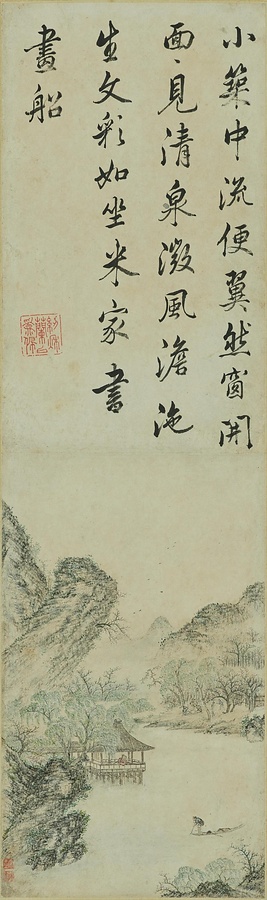 小築中流便翼然窗開
面面見清泉微風澹沲
生文彩如坐米家書
畫船